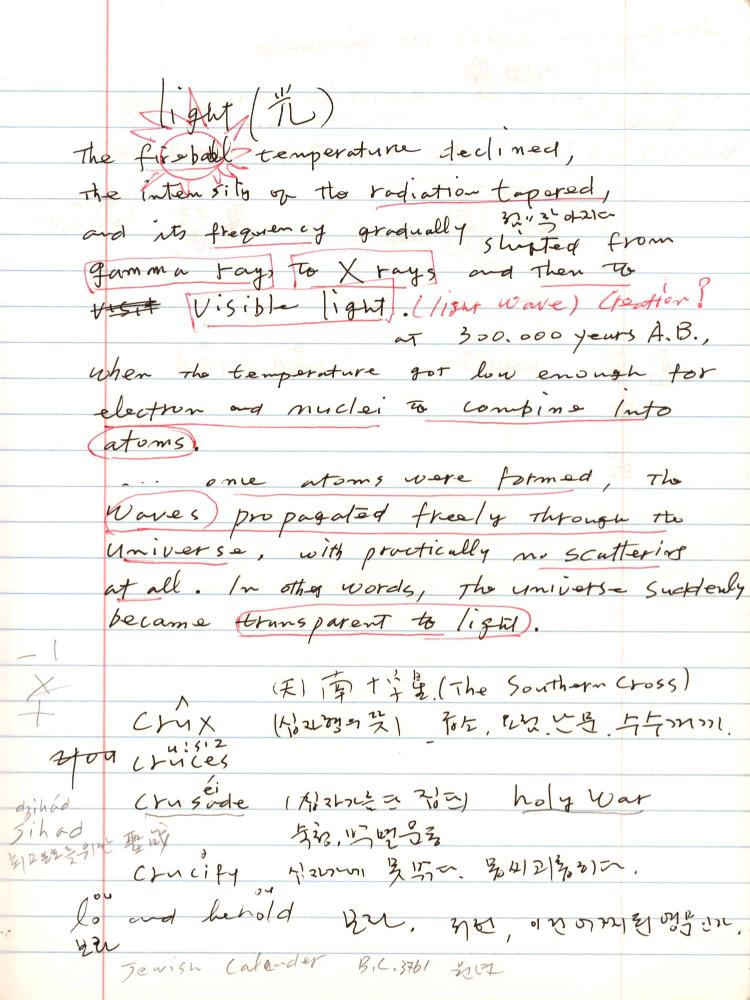 light (光)
The fireball temperature declined,
the intensity of the radiation tapered,
and its frequency gradually shifted from
점점 작아지다
gamma rays to X rays and then to
visible light. (light wave) Creation?
at 300.000 years A.B.,
when the temperature got low enough for
electron and nuclei to combine into
atoms.
.... once atoms were formed, the
waves propagated freely through the
universe, with practically no scattering
at all. In other words, the universe suddenly
became transparent to light.
(天) 南十字星 (The Southern Cross)
crux (십자형의 뜻) 급소, 요점, 난문, 수수께끼.
cruces
éi
crusade (십자가를 단 집단) holy war
숙청, 박멸운동
dzihád
Jihad 회교 보호를 위한 聖戰
crucify 십자가에 못 박다. 몹시 괴롭히다.
ou ou
lo and behold 보라.
보라
Jewish Calander B.C.3761 원년